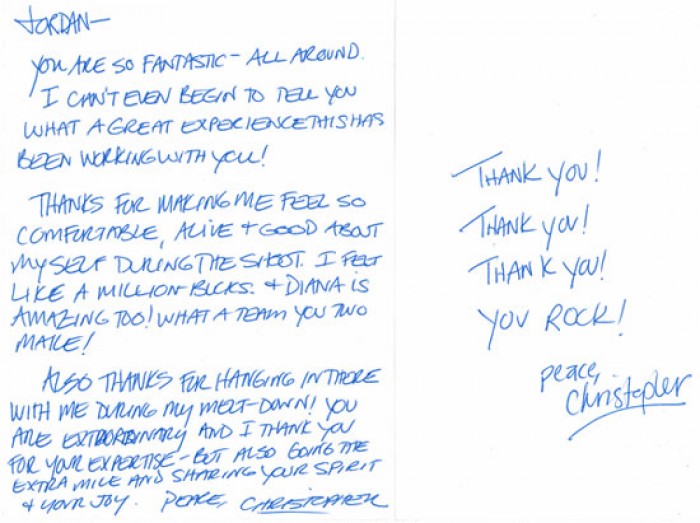 JORDAN—
YOU ARE SO FANTASTIC - ALL AROUND.
I CAN'T EVEN BEGIN TO TELL YOU
WHAT A GREAT EXPERIENCE THIS HAS
BEEN WORKING WITH YOU!
THANKS FOR MAKING ME FEEL SO
COMFORTABLE, ALIVE + GOOD ABOUT
MYSELF DURING THE SHOOT. I FELT
LIKE A MILLION BUCKS. + DIANA IS
AMAZING TOO! WHAT A TEAM YOU TWO
MAKE!
ALSO THANKS FOR HANGING IN THERE
WITH ME DURING MY MELT-DOWN! YOU
ARE EXTRAORDINARY AND I THANK YOU
FOR YOUR EXPERTISE - BUT ALSO GOING THE
EXTRA MILE AND SHARING YOUR SPIRIT
+ YOUR JOY. PEACE, CHRISTOPHER
THANK YOU!
THANK YOU!
THANK YOU!
YOU ROCK!
Peace,
Christopher